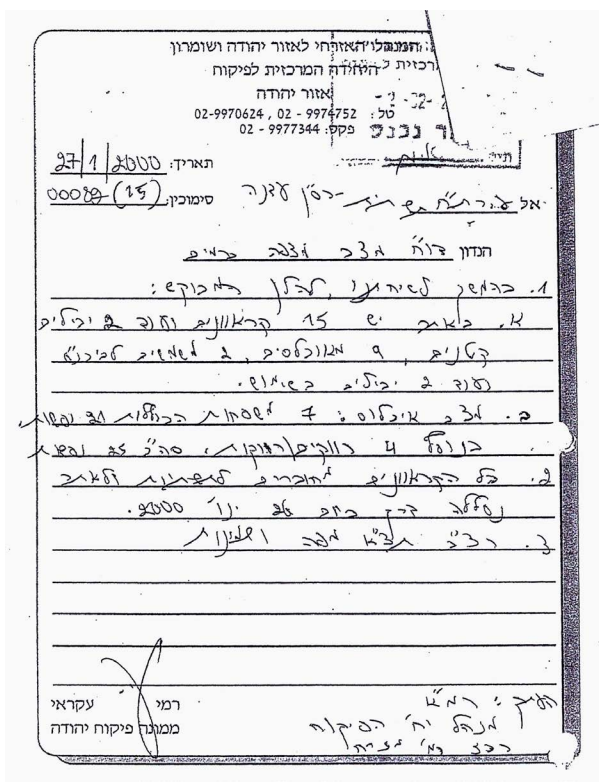 המנהל האזרחי לאזור יהודה ושומרון
היחידה המרכזית לפיקוח
אזור יהודה
טל: 02-9970624 , 02 - 9974752
פקס: 02 - 9977344
נכנס
תאריך: 27/1/2000
סימוכין: 00082 (15)
אל רס"ן עדנה
הנדון דו"ח מצב מצפה כרמים
1. בהמשך לשיחתנו, להלן המבוקש:
א. באתר יש 15 קראוונים ועוד 2 יבילים
קטנים, 9 מאוכלסים, 2 משמשים לביכנ"ס
ועוד 2 יבילים בשימוש.
ב. מצב איכלוס: 7 משפחות הכוללות 21 נפשות,
בנוסף 4 רווקים/רווקות. סה"כ 25 נפשות
2. כל הקראוונים מחוברים לתשתיות ולאתר
נסללה דרך ביום 26 ינו' 2000.
3. רצ"ב תצ"א מפה ושכינות
רמי עקראי
ממונה פיקוח יהודה
העתק: רמ"א
מנהל יח' הפיקוח